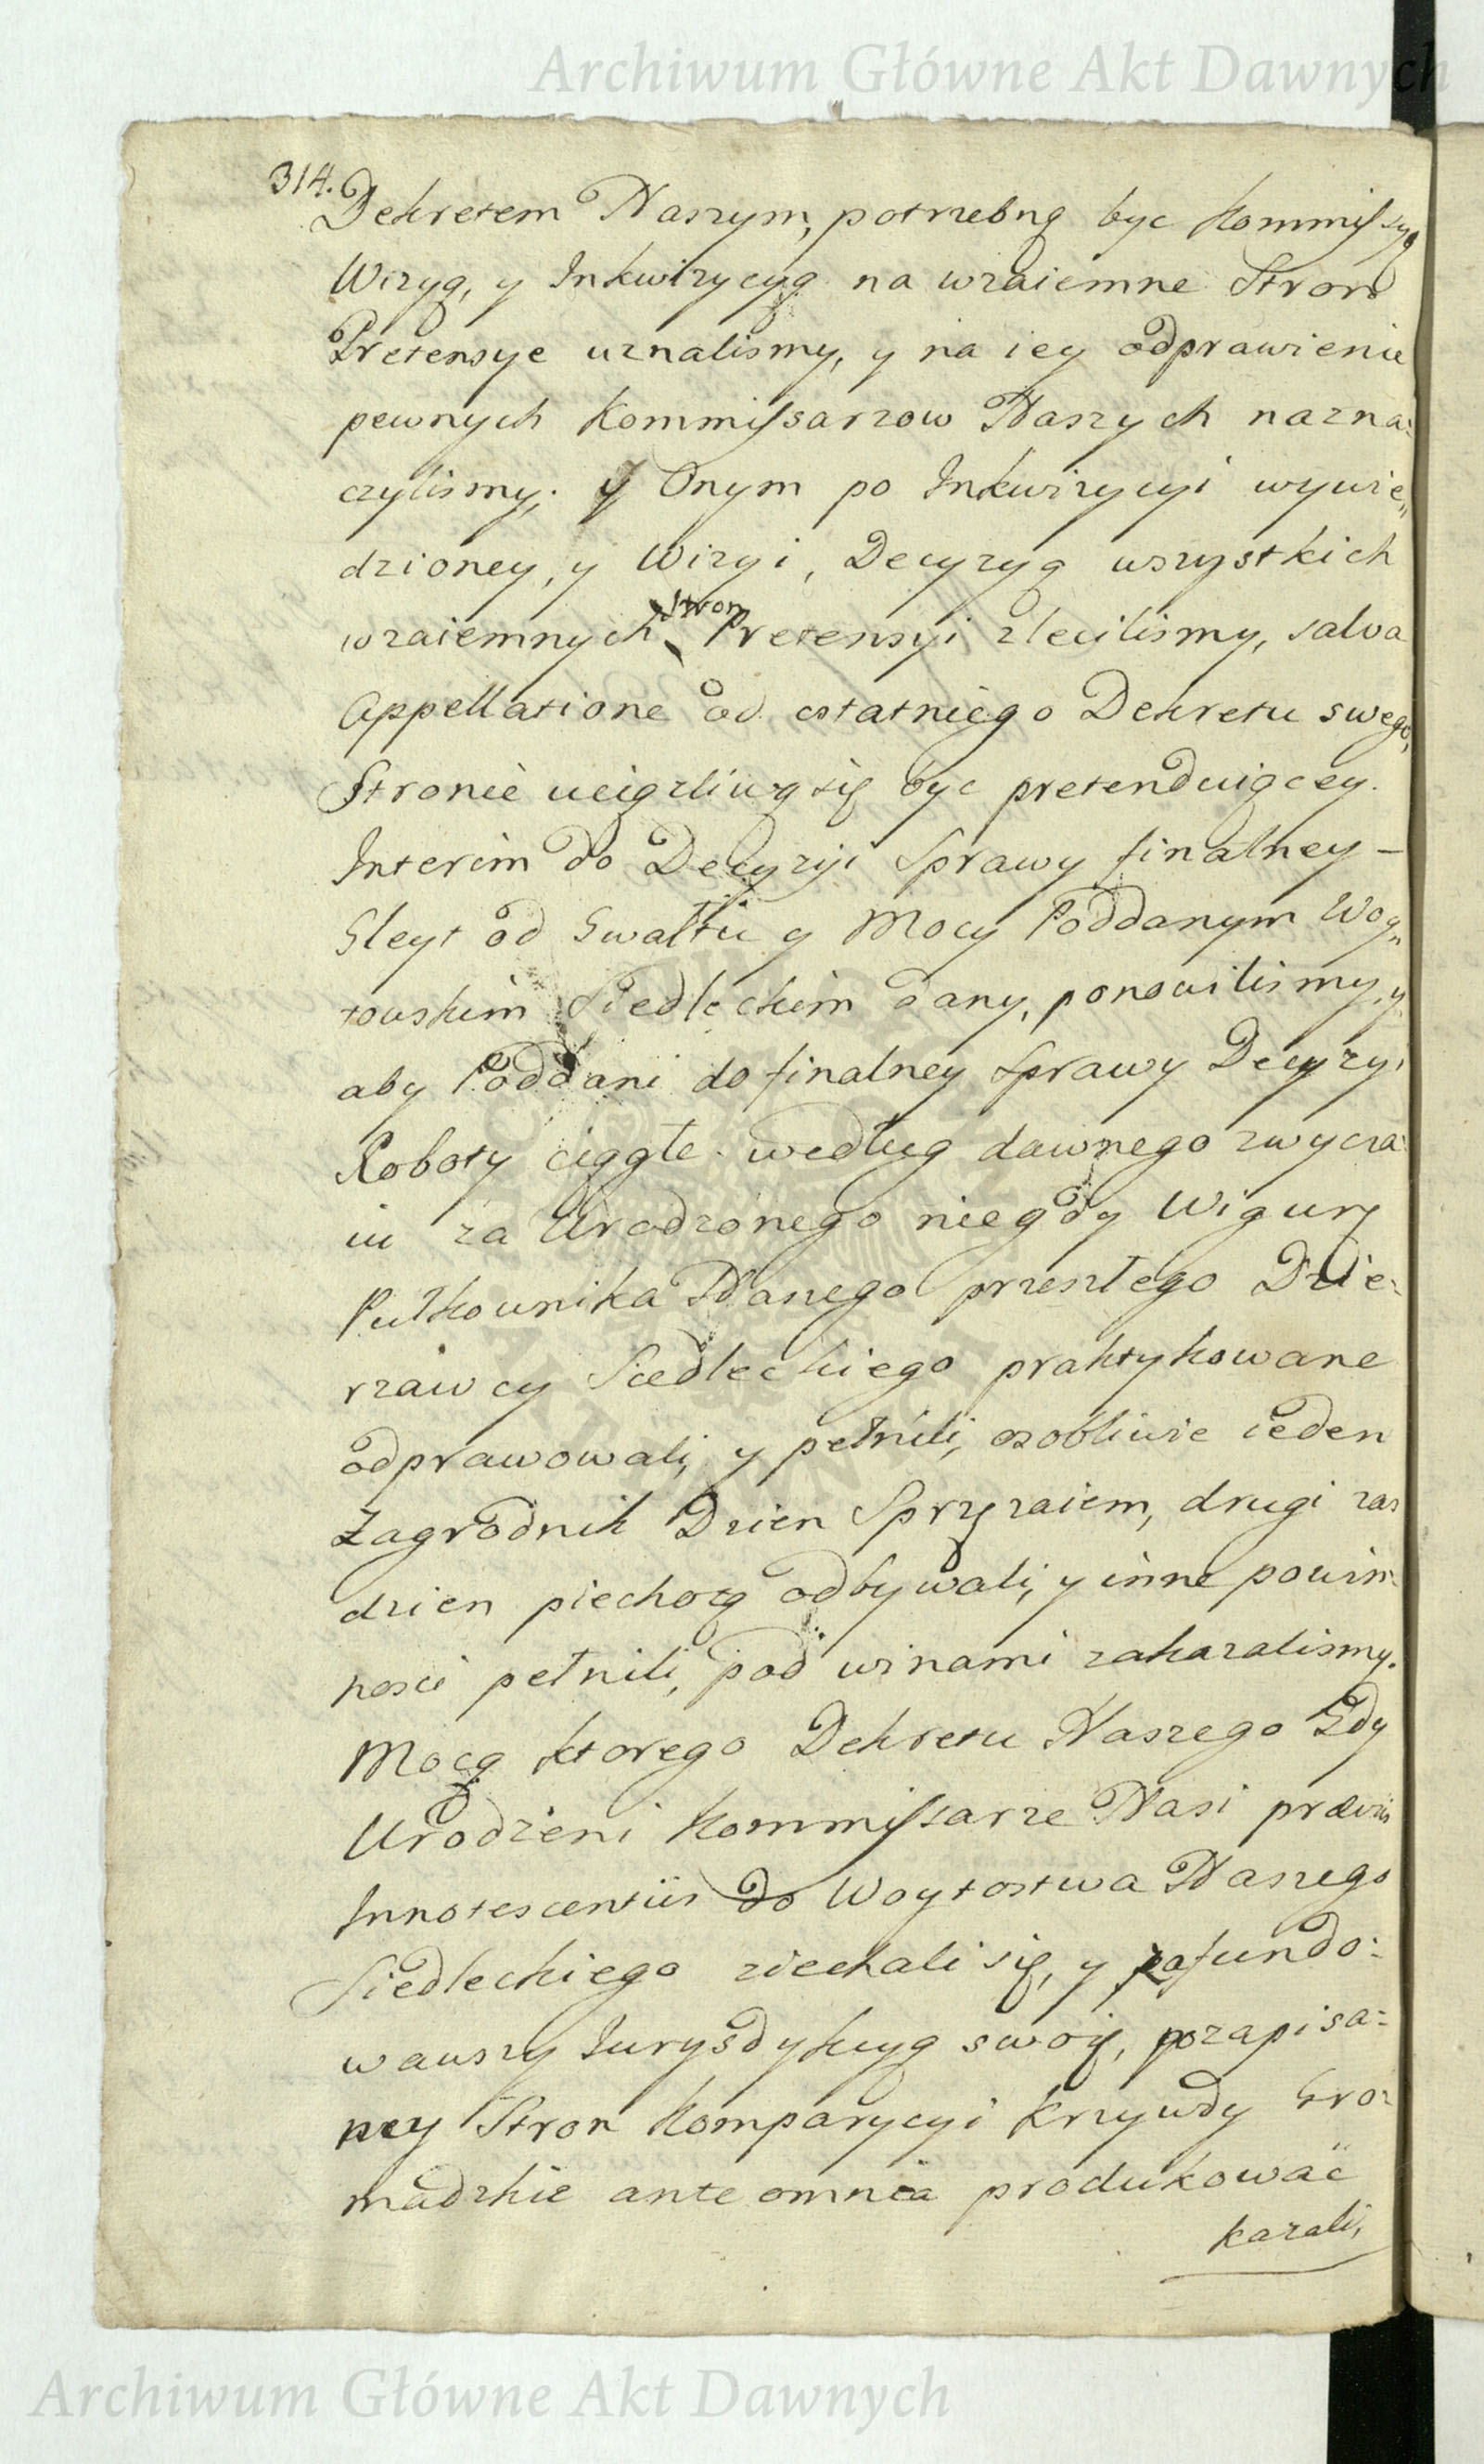 Archiwum Główne Akt Dawnych
314.
Dekretem Naszym, potrzebną byc Kommissyą
Wizyą, y Inkwizycyą na wzaiemne Stron
Pretensye uznalismy, y na iey odprawienie
pewnych Kommissarzow Naszych nazna:
czylismy; y Onym po Inkwizycyi wywie„
dzioney, y Wizyi, Decyzyą wszystkich
wzaiemnych Stron Pretensyi zlecilismy, salva
Appellatione od ostatniego Dekretu swego,
Stronie uciązliwą się byc pretenduiącey.
Interim do Decyzyi Sprawy finalney –
Gleyt od Gwałtu y Mocy Poddanym Woy„
towskim Siedleckim dany, ponowilismy, y
aby Poddani do finalney Sprawy Decyzyi
Roboty ciągłe według dawnego zwycza:
iu za Urodzonego niegdy Wigury
Pułkownika Naszego przeszłego Dzie:
rzawcy Siedleckiego praktykowane
odprawowali, y pełnili, osobliwie ieden
Zagrodnik Dzien Sprzęzaiem, drugi zas
dzien piechotą odbywali, y inne powin:
nosci pełnili, pod winami zakazalismy.
Mocą ktorego Dekretu Naszego Gdy
Urodzeni Kommissarze Nasi prævius
Innotescentiis do Woytostwa Naszego
Siedleckiego ziechali się, y zafundo:
wawszy Jurysdykcyą swoię, po zapisa:
ney Stron Komparycyi Krzywdy Gro:
madzkie ante omnia produkować
kazali,
Archiwum Główne Akt Dawnych